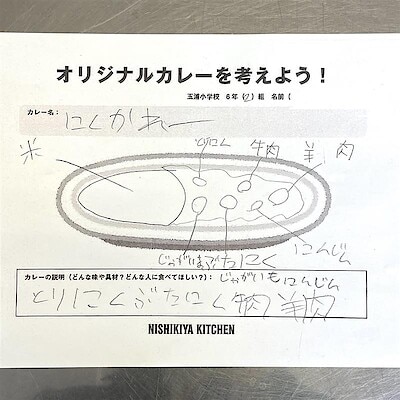 オリジナルカレーを考えよう！
玉浦小学校 6年（2）組 名前（
カレー名： にくかれー
米 とりにく 牛肉 羊肉
じゃがいも ぶたにく にんじん
カレーの説明（どんな味や具材？どんな人に食べてほしい？）： じゃがいもにんじん
とりにくぶたにく牛肉羊肉
NISHIKIYA KITCHEN